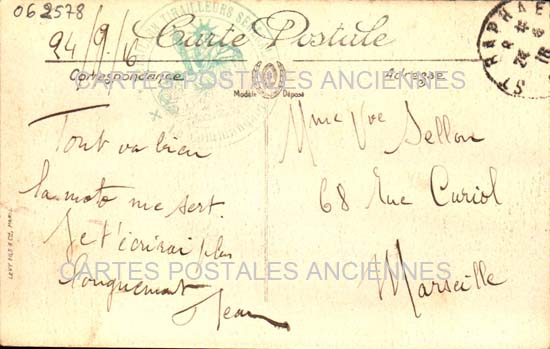 062578
24/9/16
Carte Postale
Correspondance
Adresse
Modèle Déposé
TIRAILLEURS
ST RAPHAEL
Tout va bien
la moto me sert.
Je t'écrirai plus
longuement
Jean
Mme Vve Sellon
68 Rue Curiol
Marseille
LEVY FILS & CIE, PARIS
CARTES POSTALES ANCIENNES
CARTES POSTALES ANCIENNES